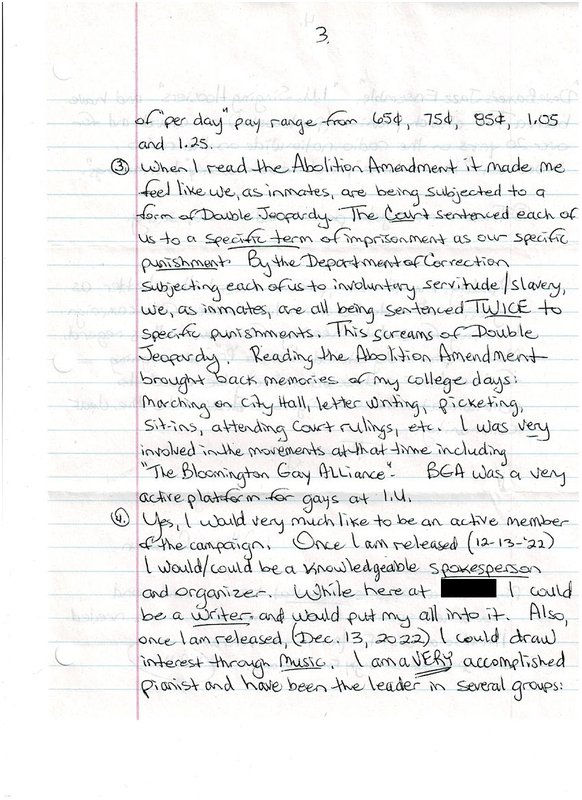 3.
of "per day" pay range from 65¢, 75¢, 85¢, 1.05
and 1.25.
③ When I read the Abolition Amendment it made me
feel like we, as inmates, are being subjected to a
form of Double Jeopardy. The Court sentenced each of
us to a specific term of imprisonment as our specific
punishment. By the Department of Correction
subjecting each of us to involuntary servitude/slavery,
we, as inmates, are all being sentenced TWICE to
specific punishments. This screams of Double
Jeopardy. Reading the Abolition Amendment
brought back memories of my college days:
Marching on City Hall, letter writing, picketing,
Sit-ins, attending Court rulings, etc. I was very
involved in the movements at that time including
"The Bloomington Gay Alliance". BGA was a very
active platform for gays at I.U.
④ Yes, I would very much like to be an active member
of the campaign. Once I am released (12-13-'22)
I would/could be a knowledgeable spokesperson
and organizer. While here at I could
be a writer, and would put my all into it. Also,
once I am released, (Dec. 13, 2022) I could draw
interest through music. I am a VERY accomplished
pianist and have been the leader in several groups: